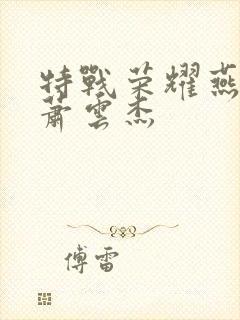 特戰荣耀燕
蕭雲杰
傅雷